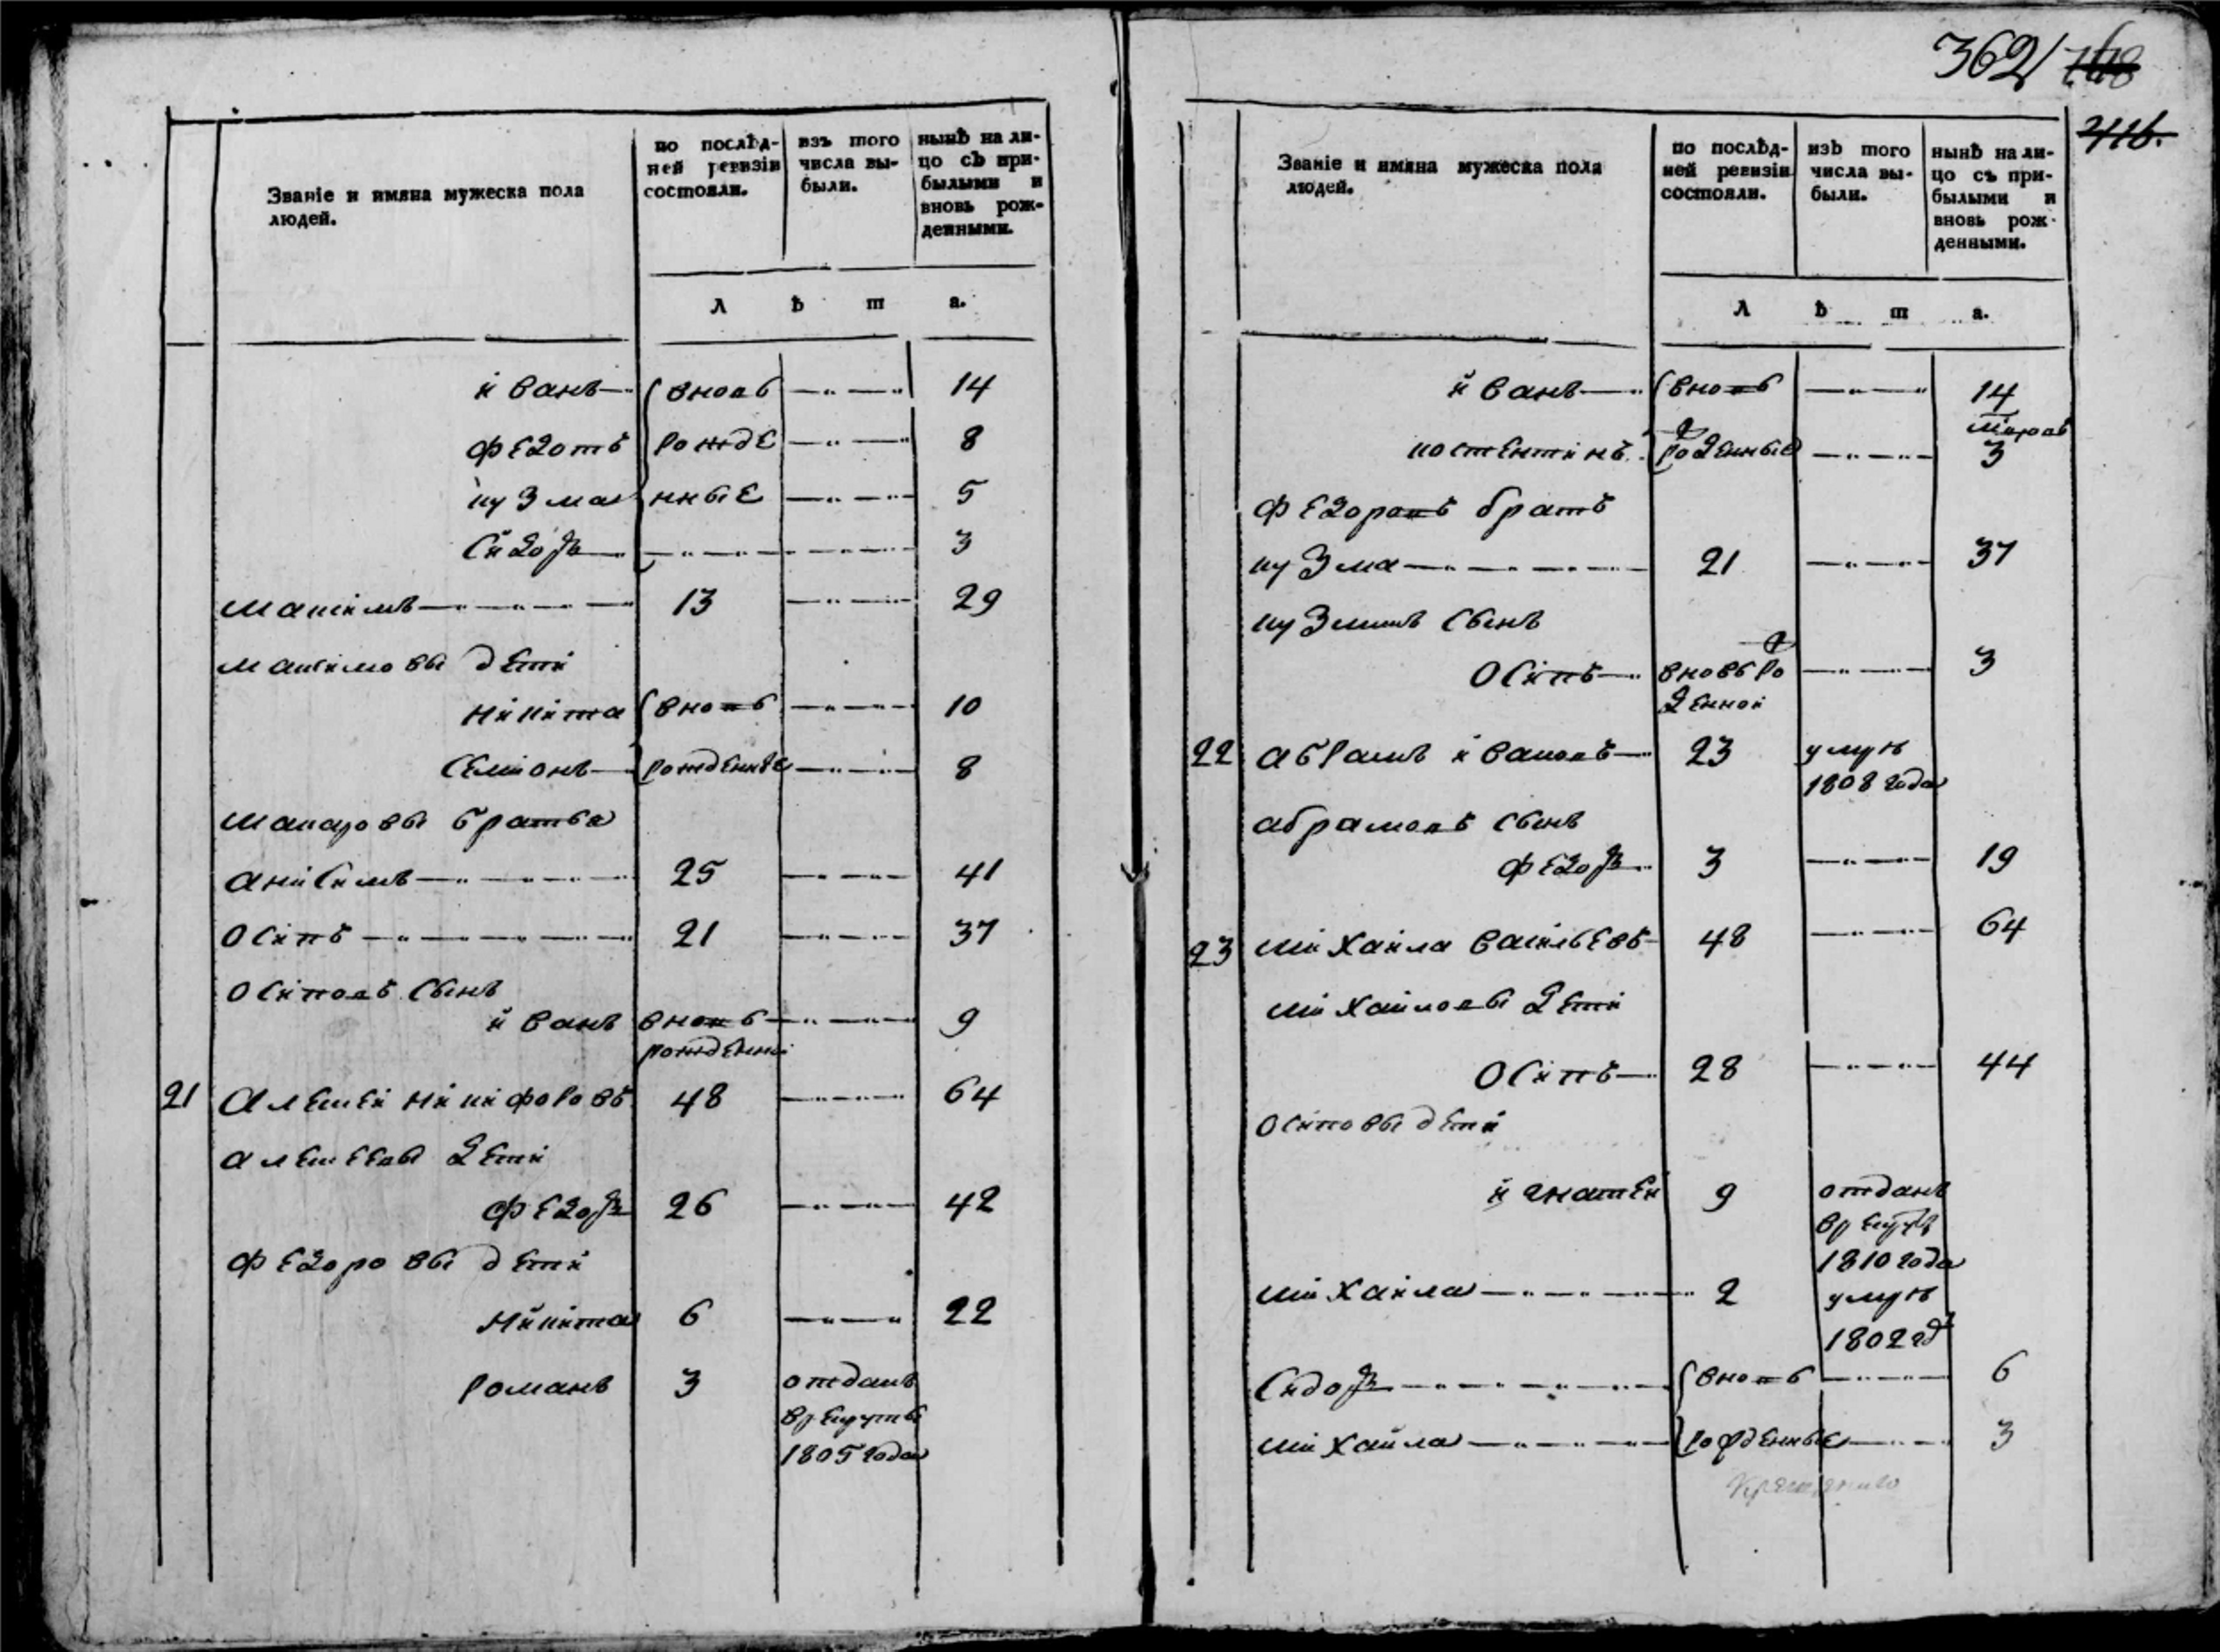 Званіе и имяна мужеска пола
людей.
по послѣд-
ней ревизіи
состояли.
изъ того
числа вы-
были.
нынѣ на ли-
цо съ при-
былыми и
вновь рож-
денными.
Л ѣ т а.
иванъ вновь 14
федотъ рожде 8
кузма нные 5
сидоръ 3
максимъ 13 29
максимовы дети
никита вновь 10
семионъ рожденые 8
макаровы братья
анисимъ 25 41
осипъ 21 37
осиповъ сынъ
иванъ вновь 9
рожденни
21 алексеи никифоровъ 48 64
алексеевы дети
федоръ 26 42
федоровы дети
никита 6 22
романъ 3 отданъ
врекруты
1805 года
362
416.
Званіе и имяна мужеска пола
людей.
по послѣд-
ней ревизіи
состояли.
изъ того
числа вы-
были.
нынѣ на ли-
цо съ при-
былыми и
вновь рож-
денными.
Л ѣ т а.
иванъ вновь 14
костентинъ роженные 3
федоровъ братъ
кузма 21 37
кузминъ сынъ
осипъ вновь ро 3
женнои
22 абрамъ ивановъ 23 умре
1808 года
абрамовъ сынъ
федоръ 3 19
23 михаила васильевъ 48 64
михаиловы дети
осипъ 28 44
осиповы дети
игнатеи 9 отданъ
врекруты
1810 года
михаила 2 умре
1802 гд
сидоръ вновь 6
михаила рожденные 3